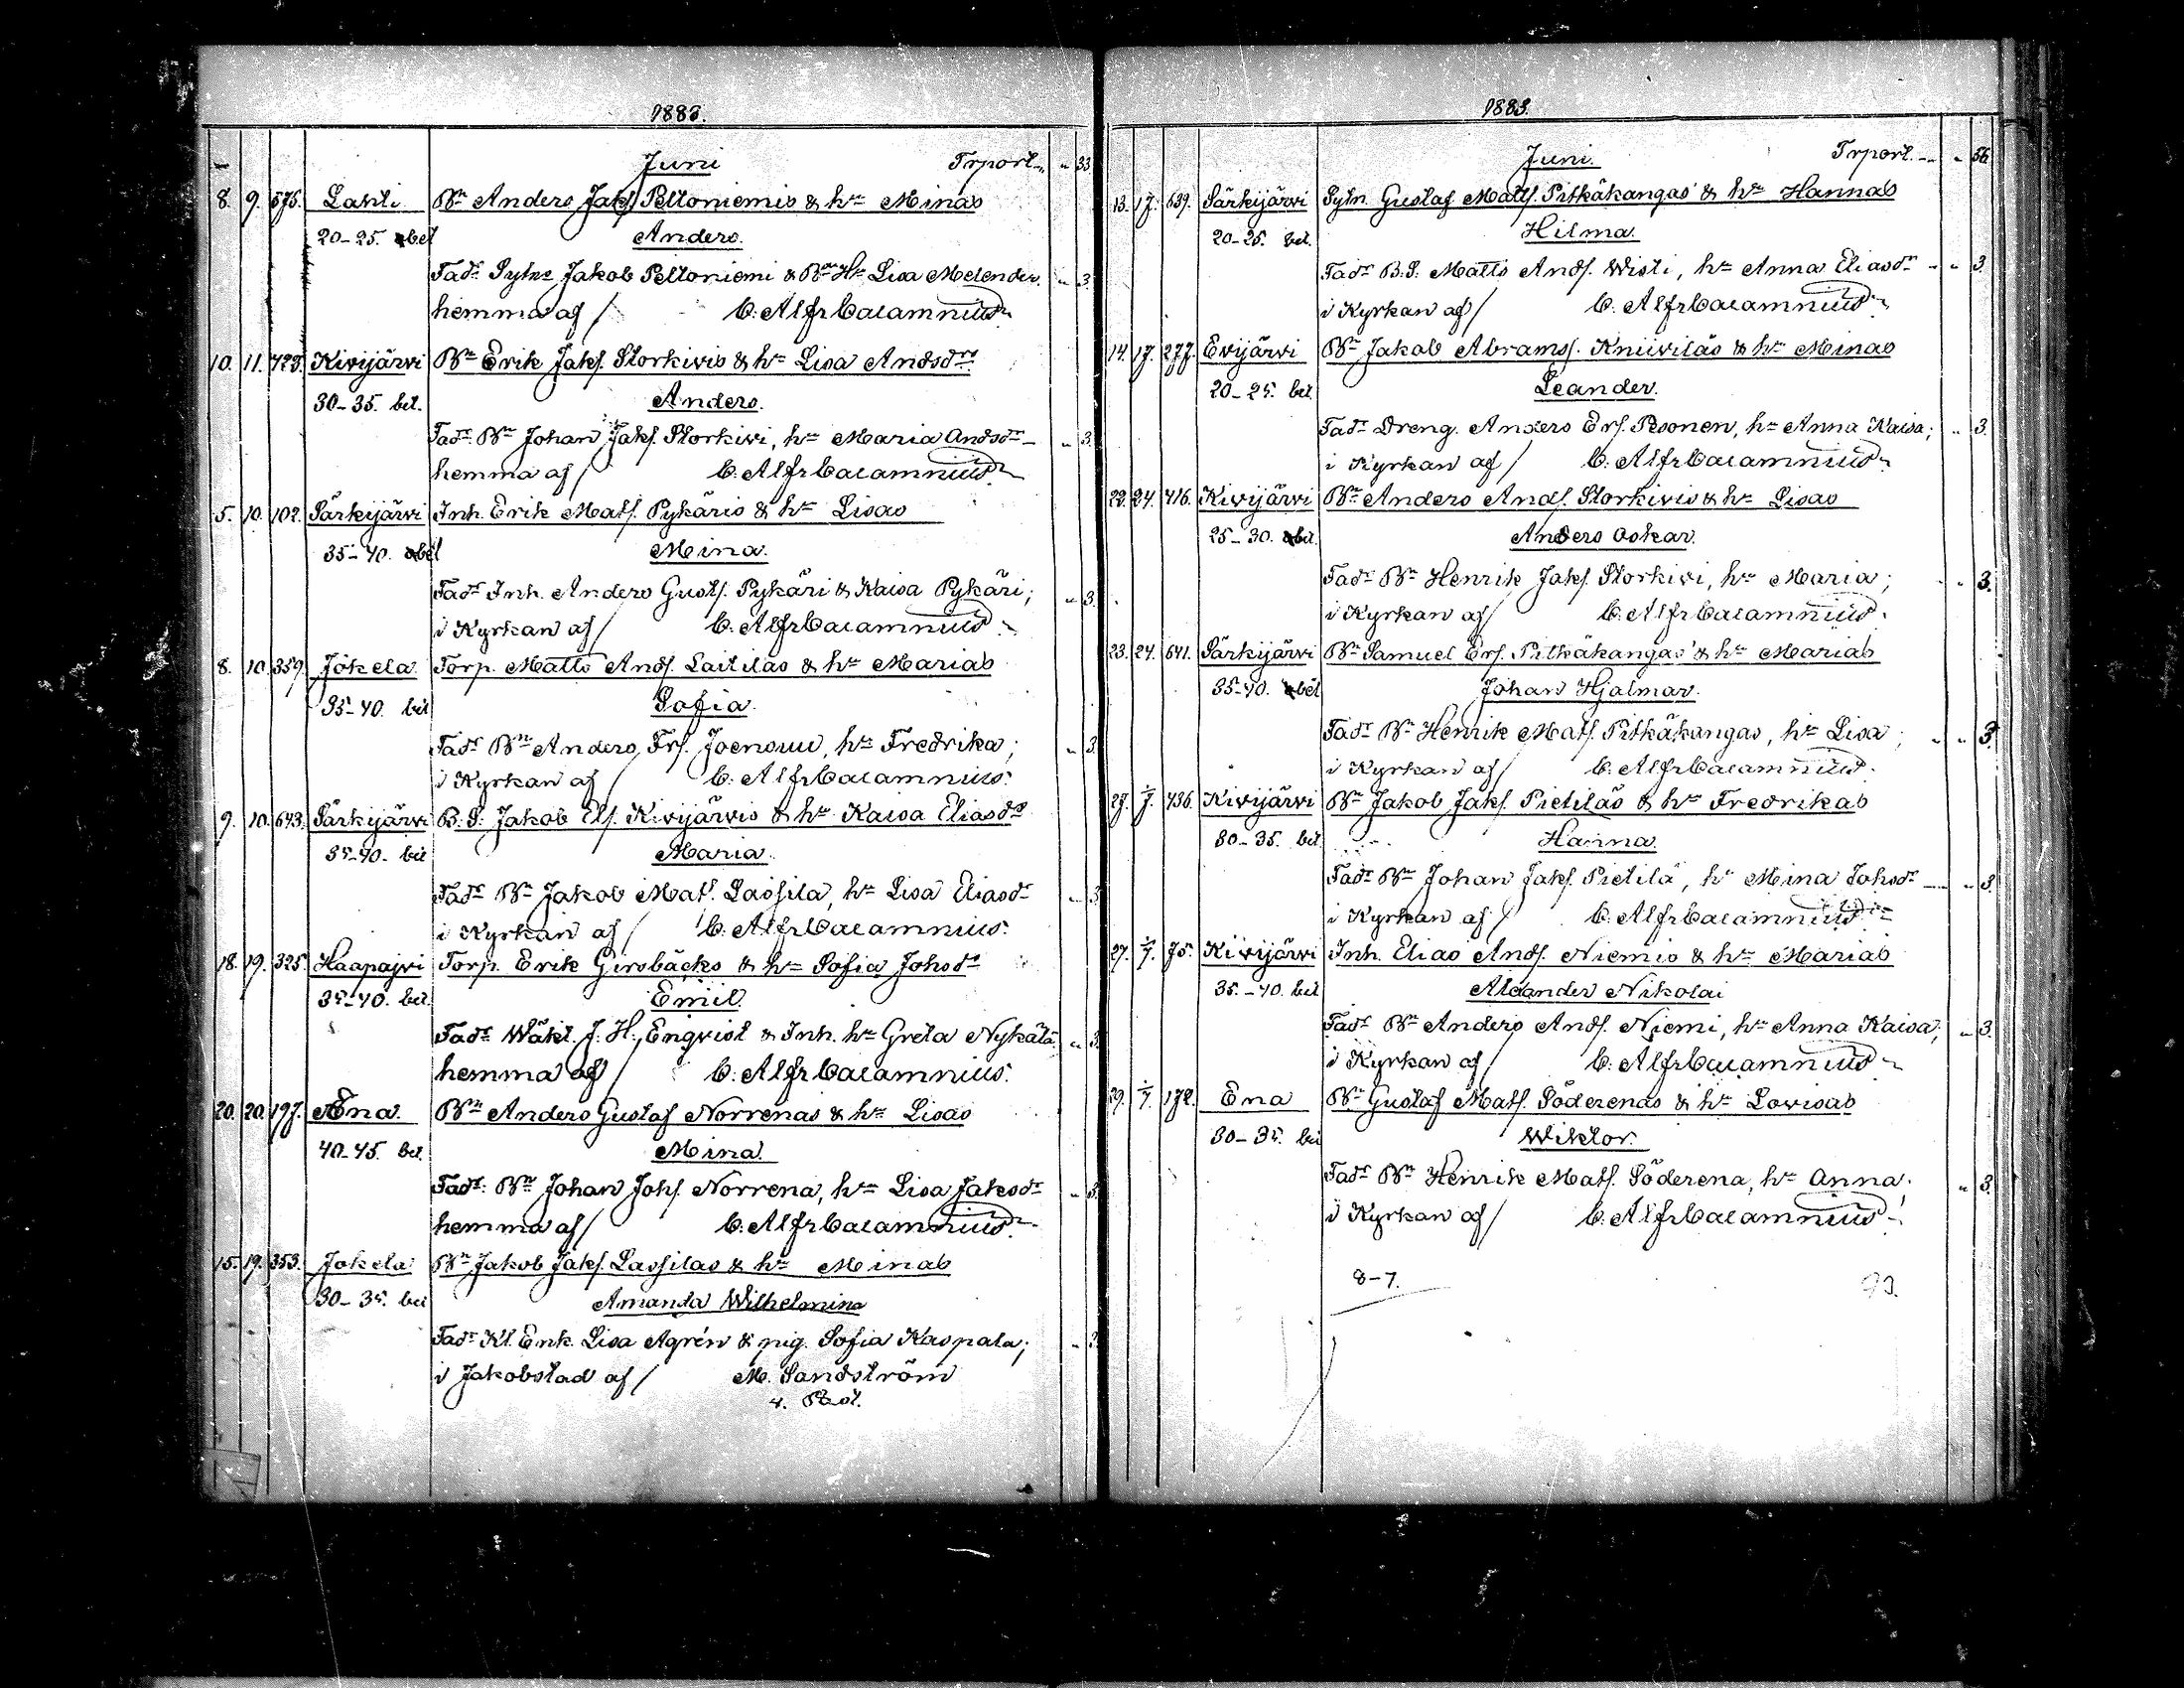 1883.
Juni Trport.. " 33
8. 9. 575. Lahti Bn Anders Jakf Peltoniemis & hn Minas
20-25. bet Anders.
Fadr. Sytne Jakob Peltoniemi & Bn Hn Lisa Melender. " 3.
hemma af / C. Alfr Calamnius
10. 11. 423. Kivijärvi Bn Erik Jakf. Storkivis & hn Lisa Andsdrs
30-35. bet. Anders.
Fadr. Bn Johan Jakf. Storkivi, hn Maria Andsdr " 3.
hemma af / C. Alfr Calamnius
5. 10. 102. Särkijärvi Inh. Erik Matf. Pykäris & hn Lisas
35-40. bet Mina.
Fadr Inh. Anders Gustf. Pykäri & Kaisa Pykäri; " 3.
i Kyrkan af / C. Alfr Calamnius
8. 10. 359. Jokela Torp. Matts Andf. Laitilas & hn Marias
35-40. bet Sofia.
Fadr Bn Anders Erf. Joensuu, hn Fredrika; " 3.
i Kyrkan af / C. Alfr Calamnius.
9. 10. 643. Särkijärvi B.S. Jakob Elf. Kivijärvis & hn Kaisa Eliasdrs
35-40. bet Maria.
Fadr Bn Jakob Matf. Lassila, hn Lisa Eliasdr " 3
i Kyrkan af / C. Alfr Calamnius.
18. 19. 325. Haapajvi Torp. Erik Girsbäcks & hn Sofia Johsdr
35-40. bet Emil.
Fadr Wäkt. J. H. Enqvist & Inh. hn Greta Nykälä " 3.
hemma af / C. Alfr Calamnius.
20. 20. 197. Ena. Bn Anders Gustaf Norrenas & hn Lisas
40-45. bet. Mina.
Fadr. Bn Johan Johf. Norrena, hn Lisa Jaksdr " 3.
hemma af / C. Alfr Calamnius
15. 19. 353. Jokela Bn Jakob Jakf. Lassilas & hn Minas
30-35. bet Amanda Wilhelmina
Fadr Kl. Enk. Lisa Agrén & pig. Sofia Kaspala; " 3.
i Jakobstad af / M. Sandström
1883.
Juni. Trport. " 56
13. 17. 639. Särkijärvi Sytn. Gustaf Mattf. Pitkäkangas & hn Hannas
20-25. bet. Hilma.
Fadr B.S. Matts Andf. Wisti, hn Anna Eliasdr " 3.
i Kyrkan af / C. Alfr Calamnius
14. 17. 277. Evijärvi Bn Jakob Abramsf. Kniiviläs & hn Minas
20-25. bet. Leander.
Fadr Dreng. Anders Erf. Pesonen, hn Anna Kaisa; " 3.
i Kyrkan af / C. Alfr Calamnius
22. 24. 416. Kivijärvi Bn Anders Andf. Storkivis & hn Lisas
25-30. bet. Anders Oskar.
Fadr Bn Henrik Jakf. Storkivi, hn Maria; " 3.
i Kyrkan af / C. Alfr Calamnius.
23. 24. 641. Särkijärvi Bn Samuel Erf. Pitkäkangas & hn Marias
35-40. bet Johan Hjalmar.
Fadr Bn Henrik Matf. Pitkäkangas, hn Lisa; " 3.
i Kyrkan af / C. Alfr Calamnius.
27. 1/7. 436. Kivijärvi Bn Jakob Jakf. Pietiläs & hn Fredrikas
30-35. bet Hanna.
Fadr Bn Johan Jakf. Pietilä, hn Mina Johsdr " 3.
i Kyrkan af / C. Alfr Calamnius
27. 1/7. 75. Kivijärvi Inh. Elias Andf. Niemis & hn Marias
35-40. bet Aleander Nikolai
Fadr Bn Anders Andf. Niemi, hn Anna Kaisa; " 3.
i Kyrkan af / C. Alfr Calamnius
29. 1/7. 172. Ena Bn Gustaf Matf. Söderenas & hn Lovisas
30-35. bet Wiktor.
Fadr Bn Henrik Matf. Söderena, hn Anna; " 3.
i Kyrkan af / C. Alfr Calamnius
8-7. 93.